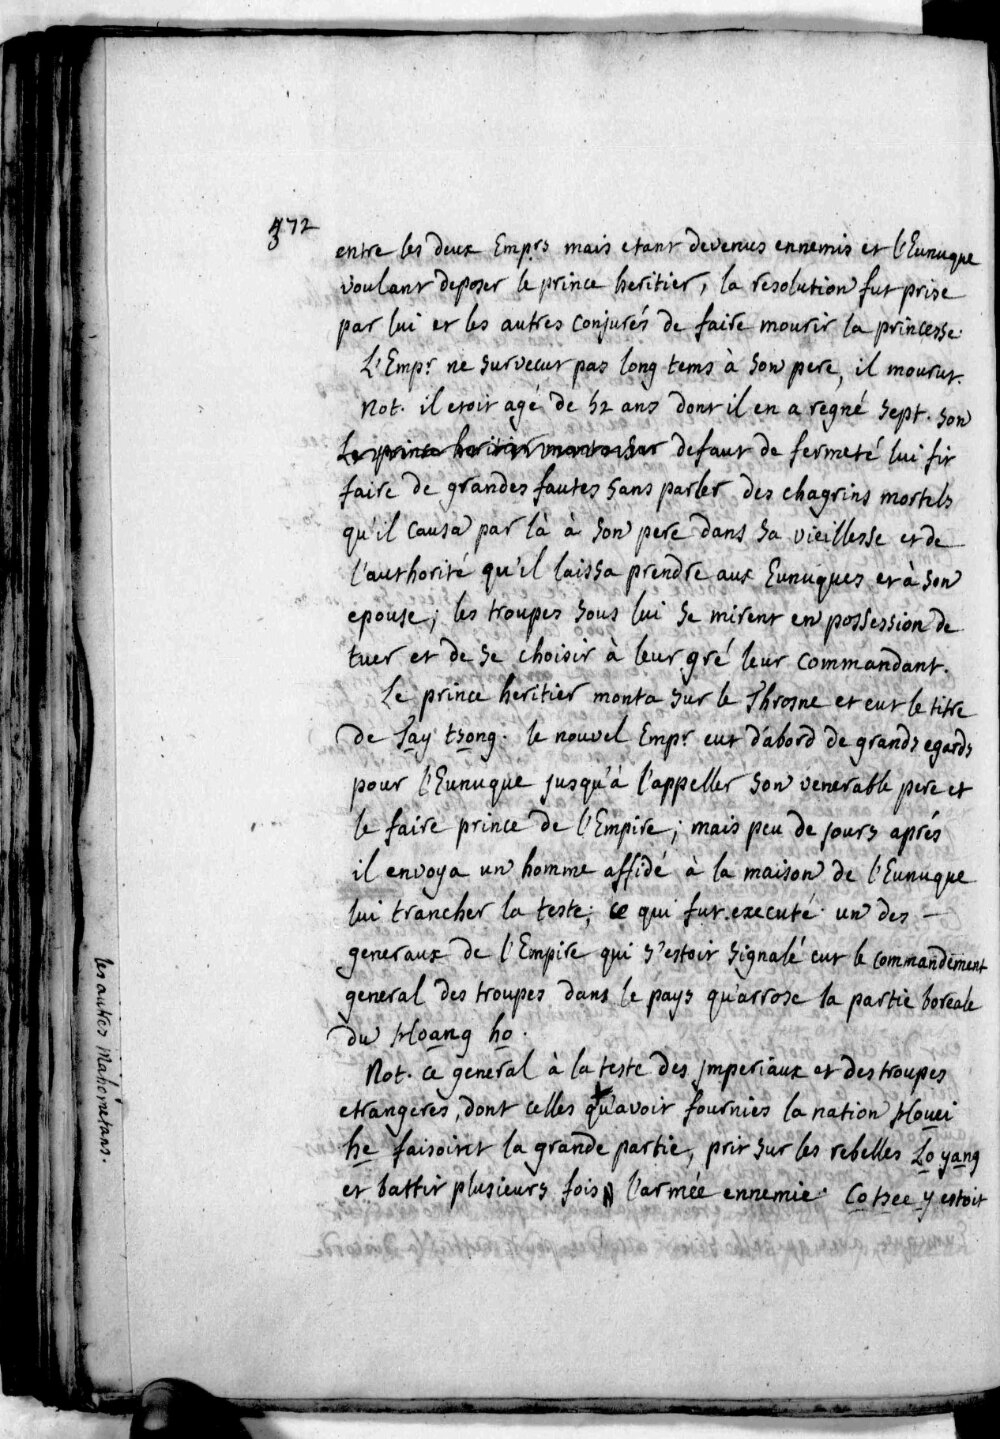 372
entre les deux Emp.rs mais etant devenus ennemis et l'Eunuque
voulant deposer le prince heritier, la resolution fut prise
par lui et les autres conjurés de faire mourir la princesse.
L'Emp.r ne survecut pas long tems à son pere, il mourut.
Not. il etoit agé de 52 ans dont il en a regné sept. son
Le prince heritier monta sur defaut de fermeté lui fit
faire de grandes fautes sans parler des chagrins mortels
qu'il causa par là à son pere dans sa vieillesse et de
l'authorité qu'il laissa prendre aux Eunuques et à son
epouse; les troupes sous lui se mirent en possession de
tuer et de se choisir à leur gré leur commandant.
Le prince heritier monta sur le Throsne et eut le titre
de Tay tsong. le nouvel Emp.r eut d'abord de grands egards
pour l'Eunuque jusqu'à l'appeller son venerable pere et
le faire prince de l'Empire; mais peu de jours aprés
il envoya un homme affidé à la maison de l'Eunuque
lui trancher la teste; ce qui fut executé. un des –
generaux de l'Empire qui s'estoit signalé eut le commandement
general des troupes dans le pays qu'arrose la partie boreale
du Hoang ho.
Not. ce general à la teste des Jmperiaux et des troupes
etrangeres, dont celles qu'avoit fournies la nation Houei
he faisoient la grande partie, prit sur les rebelles Lo yang
et battit plusieurs fois l'armée ennemie. Co tsee y estoit
les autres Mahometans.